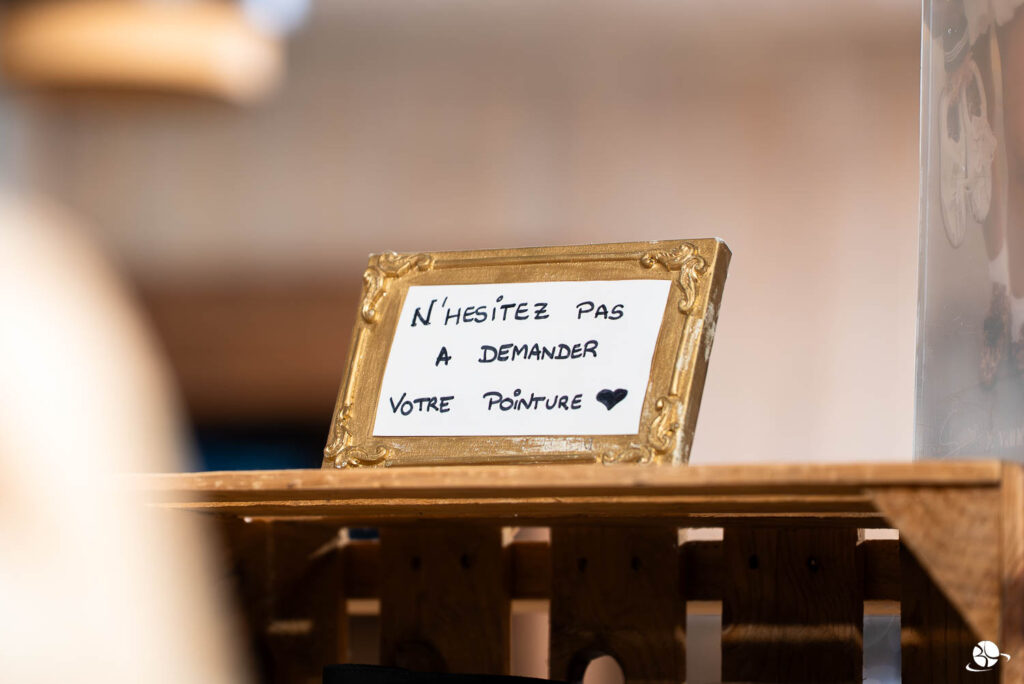 N'HESITEZ PAS
A DEMANDER
VOTRE POINTURE ♥